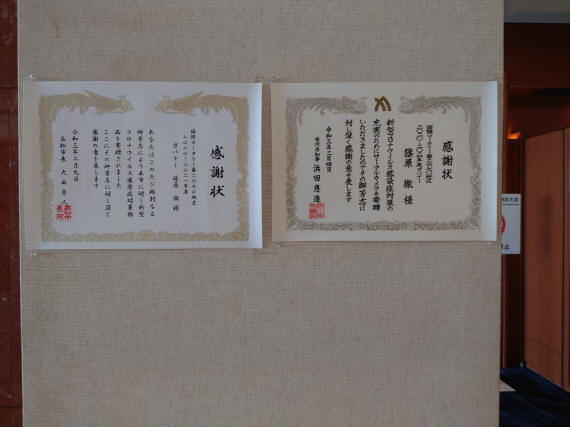 感謝状
国際ロータリー第二六七〇地区
二〇二〇-二〇二一年度
ガバナー 篠原 徹 様
あなたはこのたび格別なる
御芳志により本市に対し新型
コロナウイルス感染症対策物
品を寄贈されました
ここにその御芳志に対し深く
感謝の意を表します
令和三年二月九日
高松市長 大西秀人
感謝状
国際ロータリー第二六七〇地区
二〇二〇-二〇二一年度ガバナー
篠原 徹 様
新型コロナウイルス感染症対策の
充実のためにサーマルカメラを寄贈
いただきましたのでその御芳志に
対し深く感謝の意を表します
令和三年二月四日
香川県知事 浜田恵造
止